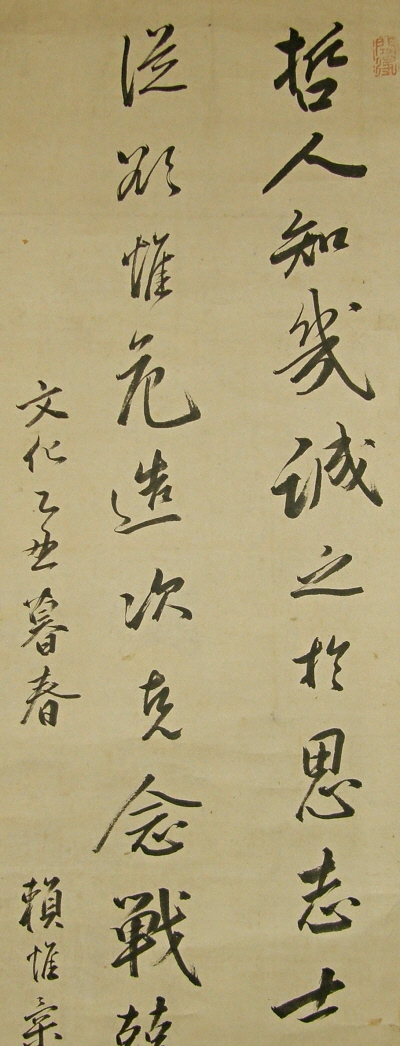 哲人知幾誠之於思志士
從欲惟危造次克念戰兢
文化乙丑暮春　賴惟柔